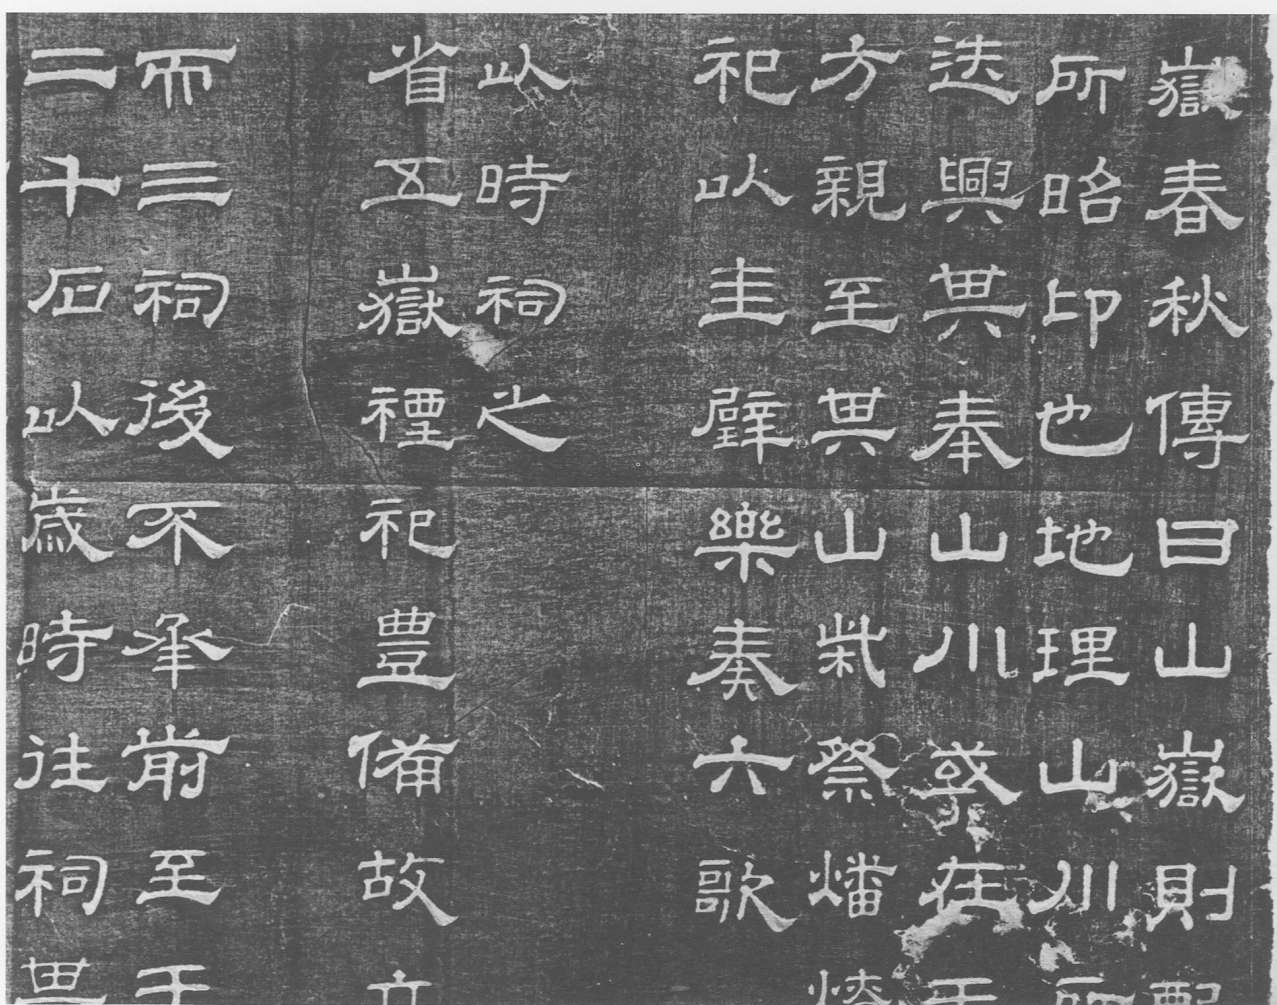 嶽春秋傳曰山嶽則配
所昭卬也地理山川所
迭興其奉山川或在天
方親至其山柴祭燔燎
祀以圭璧樂奏六歌
以時祠之
省五嶽禋祀豊備故立
而三祠後不承前至于
二千石以歲時往祠其